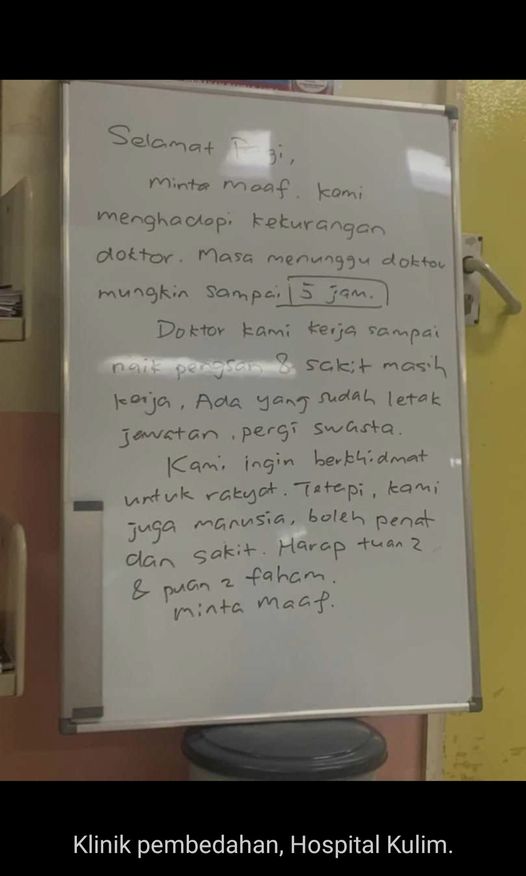 Selamat Pagi,
Minta maaf. Kami
menghadapi kekurangan
doktor. Masa menunggu doktor
mungkin sampai 5 jam.
Doktor kami kerja sampai
naik pengsan & sakit masih
kerja, Ada yang sudah letak
jawatan, pergi swasta.
Kami ingin berkhidmat
untuk rakyat. Tetapi, kami
juga manusia, boleh penat
dan sakit. Harap tuan2
& puan2 faham.
Minta Maaf.
Klinik pembedahan, Hospital Kulim.